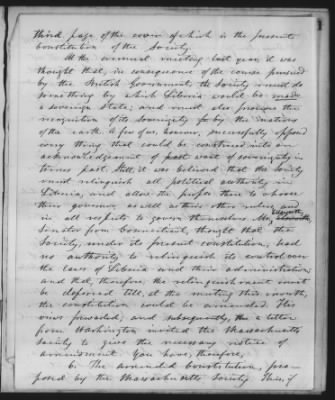 third page of the cover of which is the present
Constitution of the Society.
At the annual meeting last year, it was
thought that, in consequence of the course pursued
by the British Government, the Society must do
something by which Liberia would be made
a sovereign State; and must also procure the
recognition of its sovereignty by the nations
of the earth. A few of us, however, successfully opposed
every thing that could be construed into an
acknowledgement of past want of sovereignty in
times past. Still, it was believed that the Society
must relinquish all political authority in
Liberia, and allow the people there to choose
their governor, as well as their other rulers, and
in all respects to govern themselves. Mr. Ellsworth,
Senator from Connecticut, thought that the
Society, under its present constitution, had
no authority to relinquish its control over
the laws of Liberia and their administration;
and that, therefore, the relinquishment must
be deferred till, at the meeting this month,
the constitution should be amended. This
view prevailed; and subsequently, the a letter
from Washington invited the Massachusetts
Society to give the necessary notice of
amendment. You have, therefore,
6. The amended Constitution, pro-
posed by the Massachusetts Society. This, if